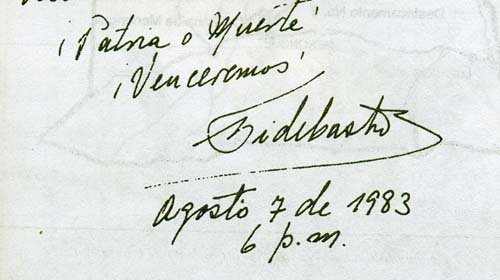 ¡Patria o Muerte!
¡Venceremos!
Fidel Castro
Agosto 7 de 1983
6 p.m.